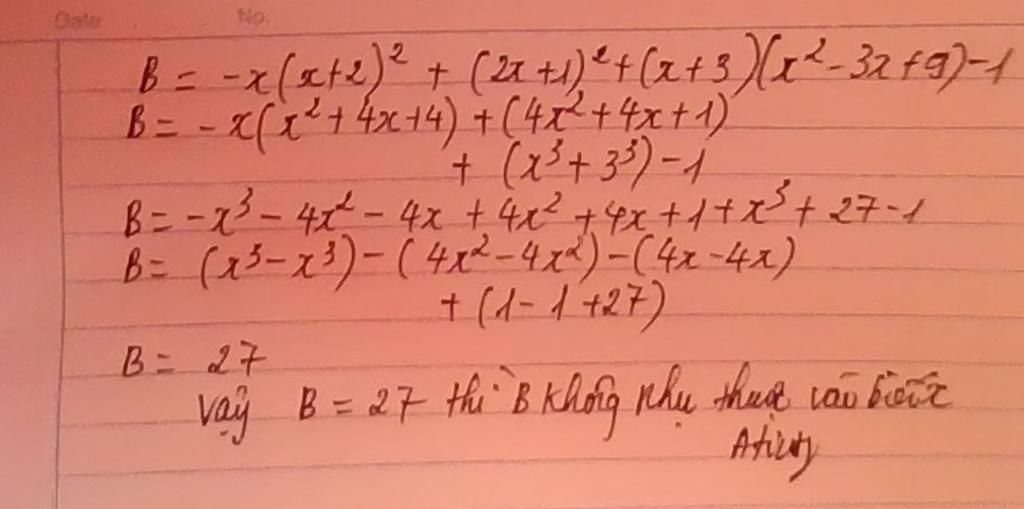 Date No.
B = -x(x+2)² + (2x+1)² + (x+3)(x² - 3x + 9) - 1
B = - x(x² + 4x + 4) + (4x² + 4x + 1)
+ (x³ + 3³) - 1
B = -x³ - 4x² - 4x + 4x² + 4x + 1 + x³ + 27 - 1
B = (x³ - x³) - (4x² - 4x²) - (4x - 4x)
+ (1 - 1 + 27)
B = 27
Vậy B = 27 thì B không phụ thuộc vào biến x